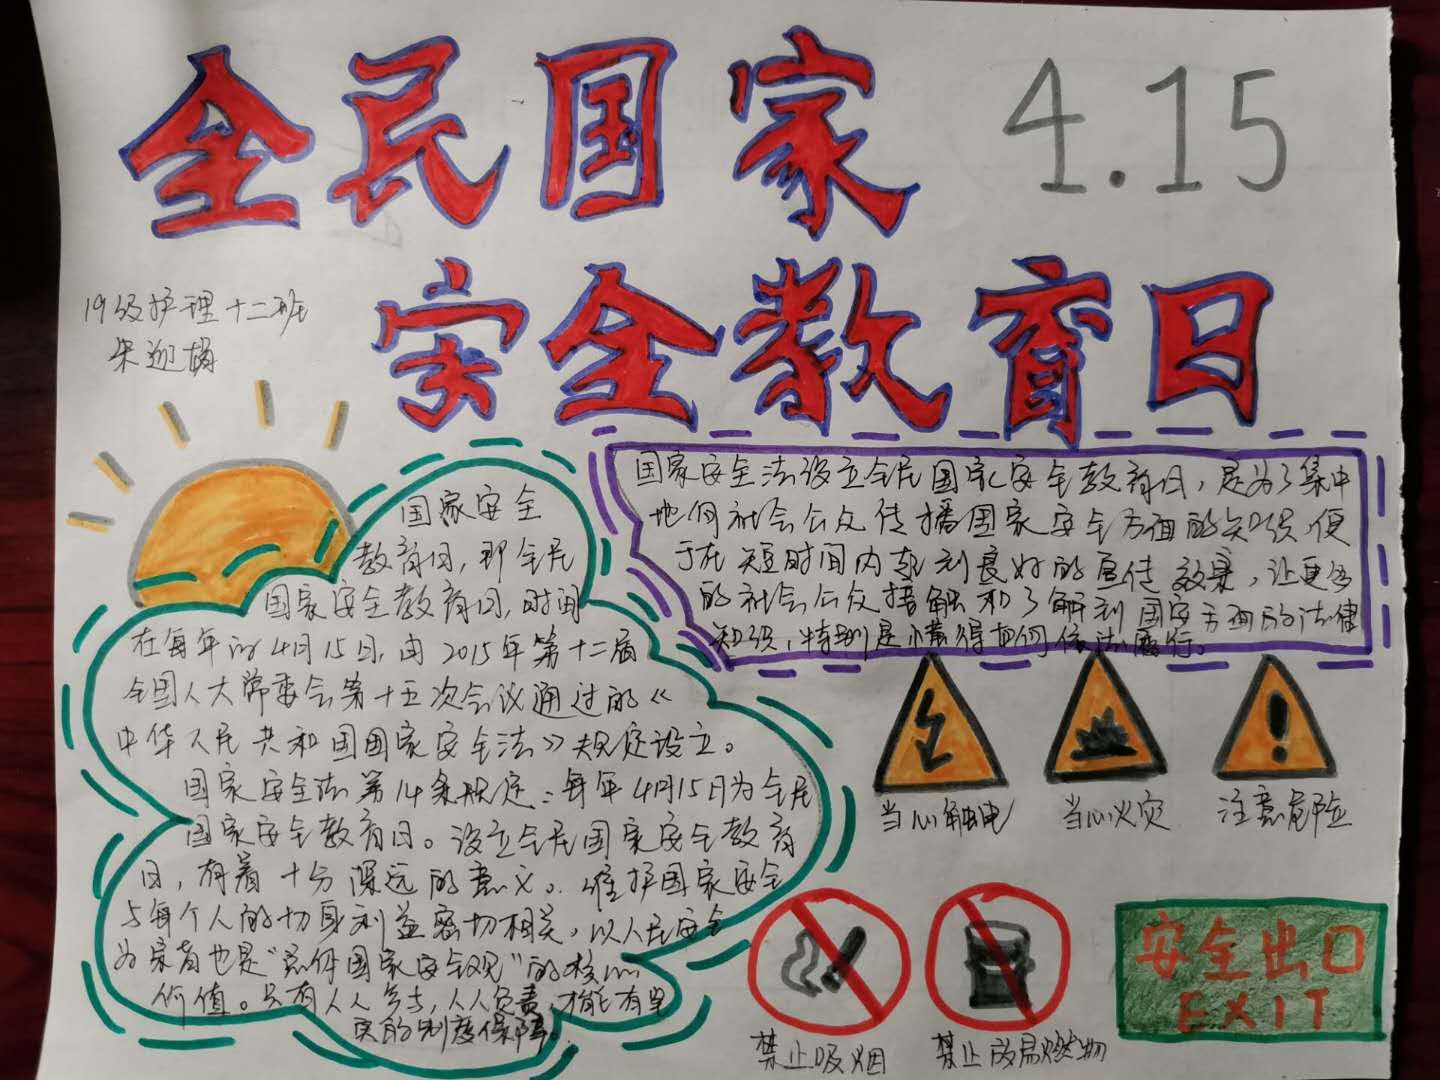 全民国家
4.15
安全教育日
19级护理十二班
朱迎
国家安全
教育日，即全民
国家安全教育日，时间
在每年的4月15日，由2015年第十二届
全国人大常委会第十五次会议通过的《
中华人民共和国国家安全法》规定设立。
国家安全法第14条规定：每年4月15日为全民
国家安全教育日。设立全民国家安全教育
日，有着十分深远的意义。维护国家安全
与每个人的切身利益密切相关，以人民安全
为宗旨也是“总体国家安全观”的核心
价值。只有人人参与，人人负责，才能有坚
实的制度保障。
国家安全法设立全民国家安全教育日，是为了集中
地向社会公众传播国家安全方面的知识，便
于在短时间内起到良好的宣传效果，让更多
的社会公众接触和了解到国安方面的法律
知识，特别是懂得如何依法履行。
当心触电
当心火灾
注意危险
禁止吸烟
禁止放易燃物
安全出口
EXIT